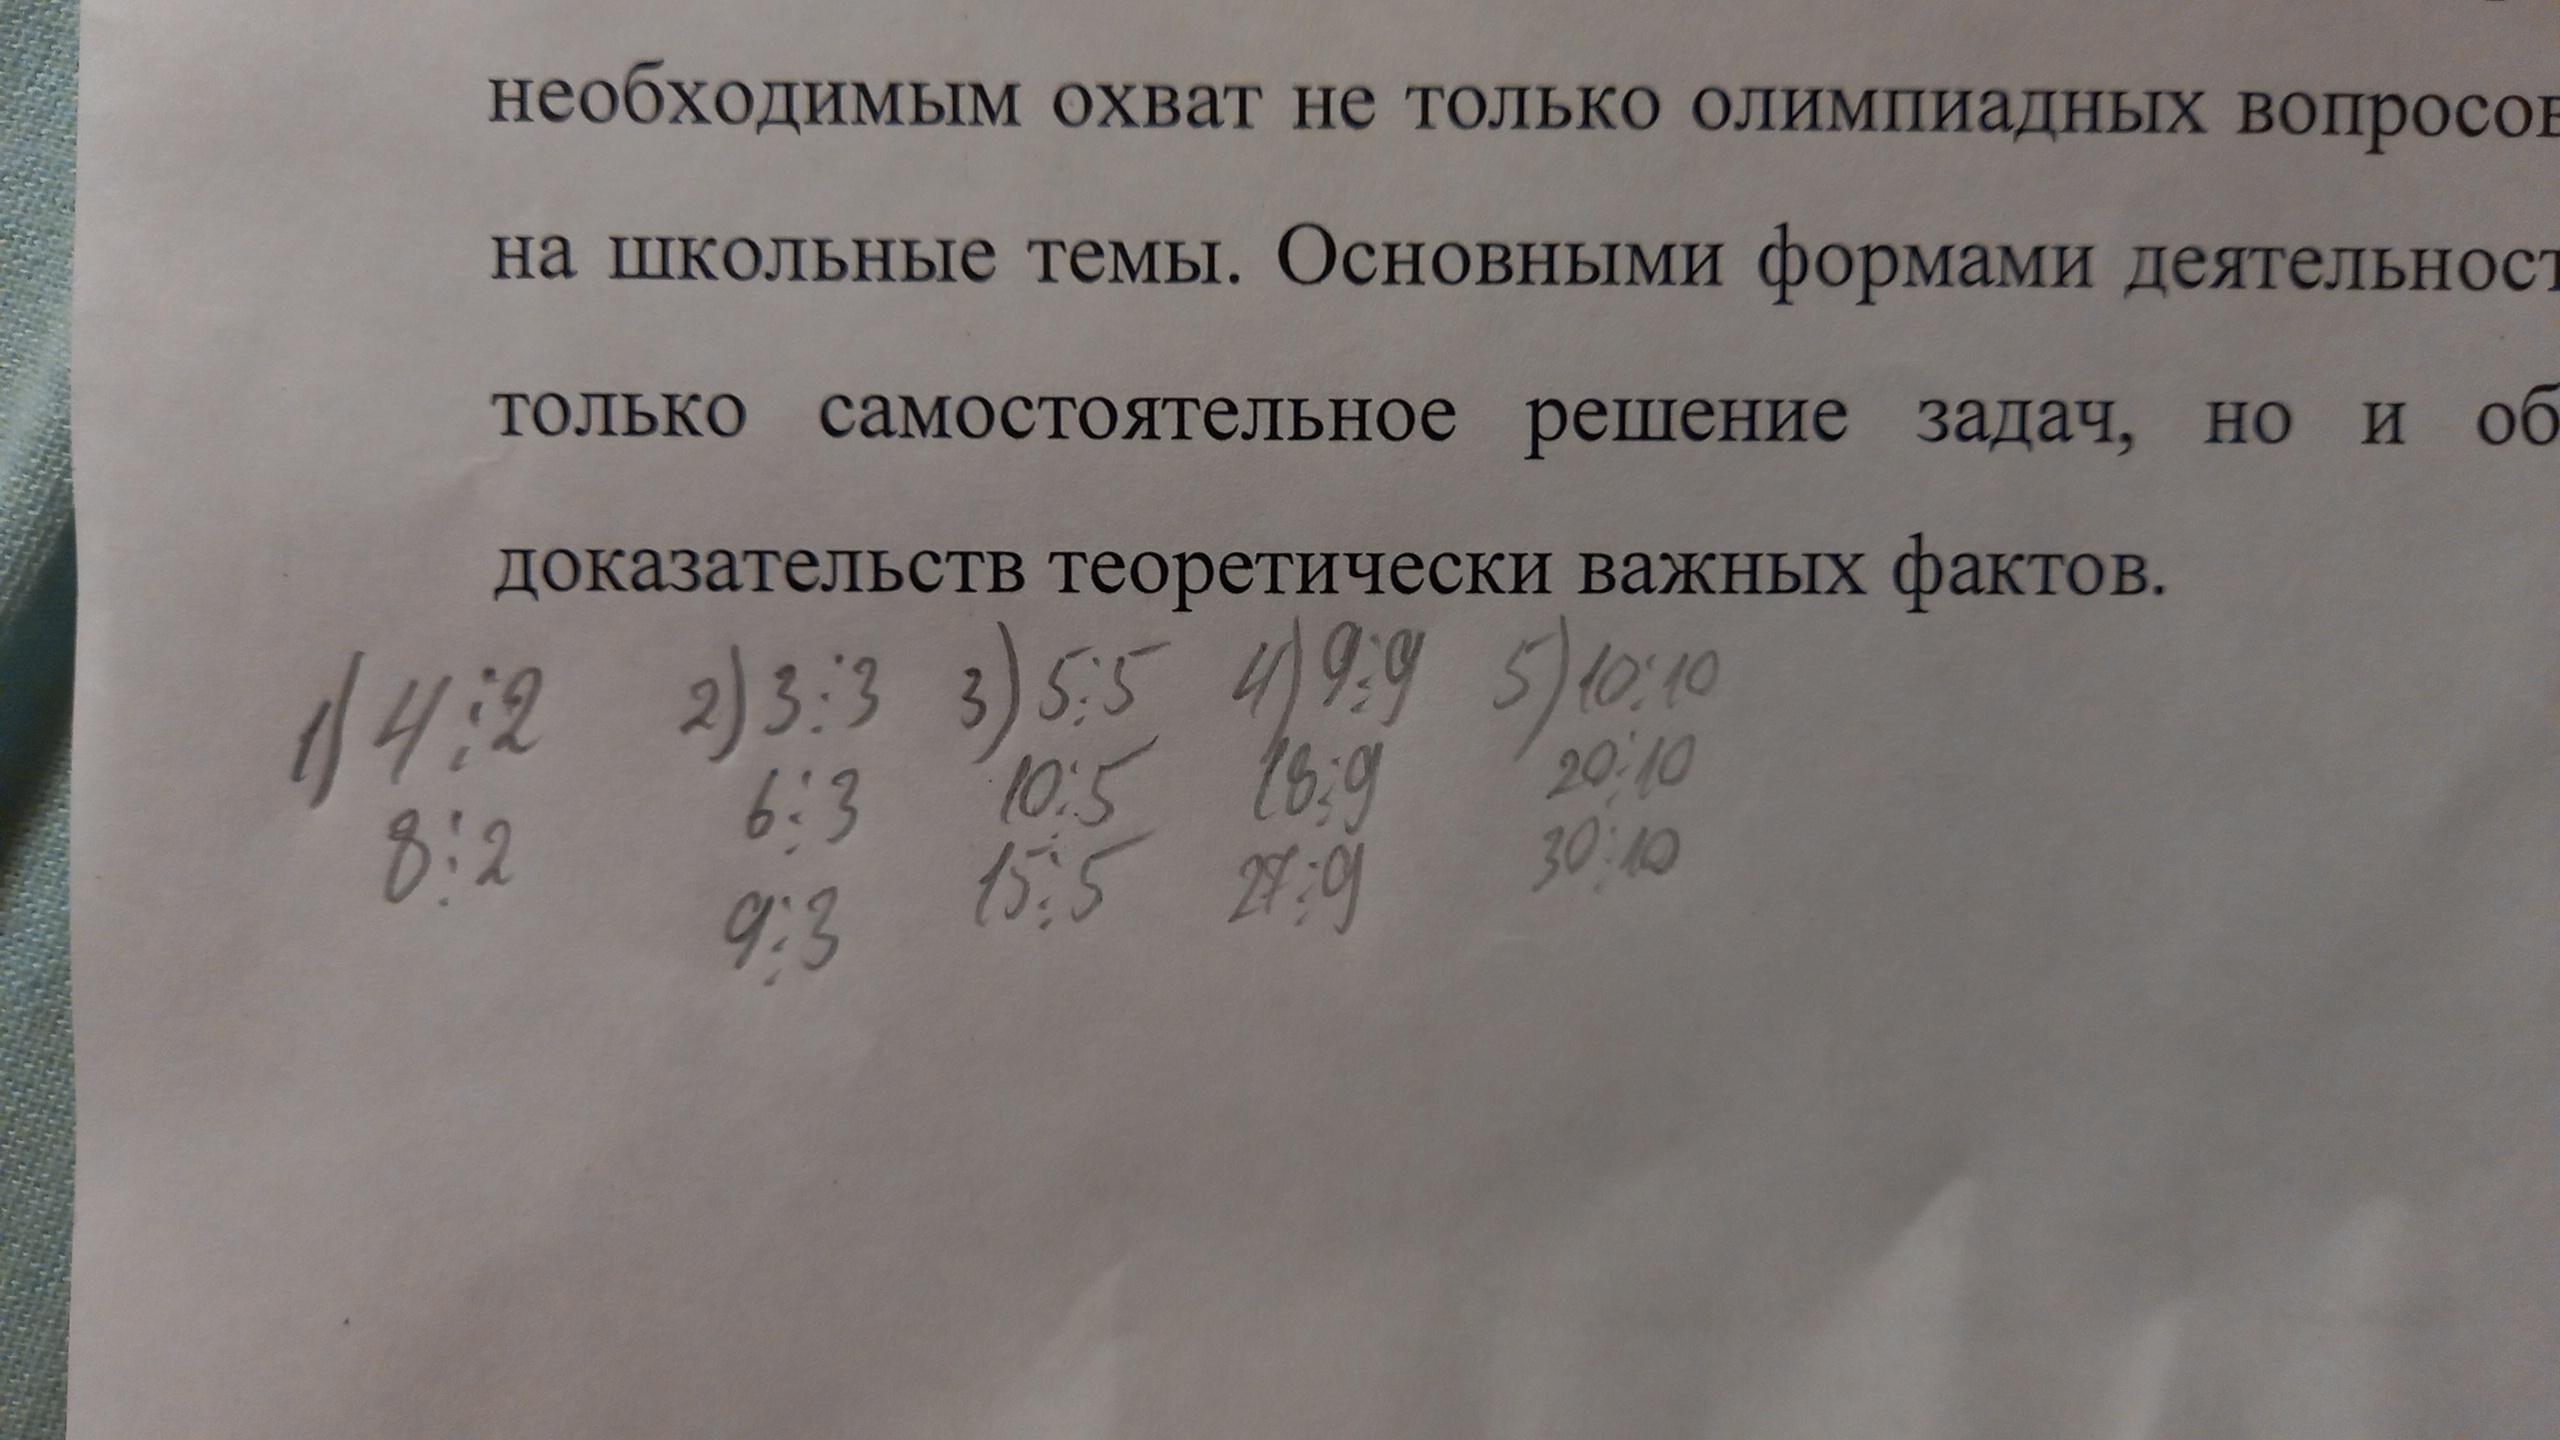 необходимым охват не только олимпиадных вопросов
на школьные темы. Основными формами деятельност
только самостоятельное решение задач, но и об
доказательств теоретически важных фактов.
1) 4⋮2 2) 3⋮3 3) 5⋮5 4) 9⋮9 5) 10⋮10
8⋮2 6⋮3 10⋮5 18⋮9 20⋮10
9⋮3 15⋮5 27⋮9 30⋮10